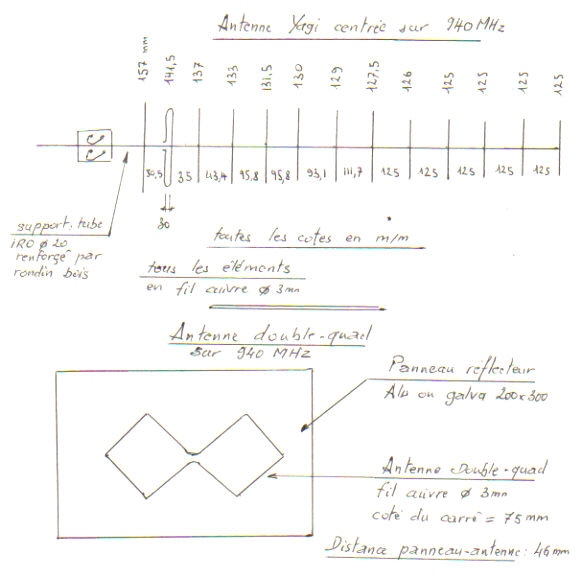 Antenne Yagi centrée sur 940 MHz
157 mm 141,5 137 133 131,5 130 129 127,5 126 125 125 125 125
50,5 35 43,4 95,8 95,8 93,1 111,7 125 125 125 125 125
30
support: tube
iRO ø 20
renforçé par
rondin bois
toutes les cotes en m/m
tous les éléments
en fil cuivre ø 3mm
Antenne double-quad
sur 940 MHz
Panneau réflecteur
Alu ou galva 200x300
Antenne Double-quad
fil cuivre ø 3mm
coté du carré = 75mm
Distance panneau-antenne: 46mm